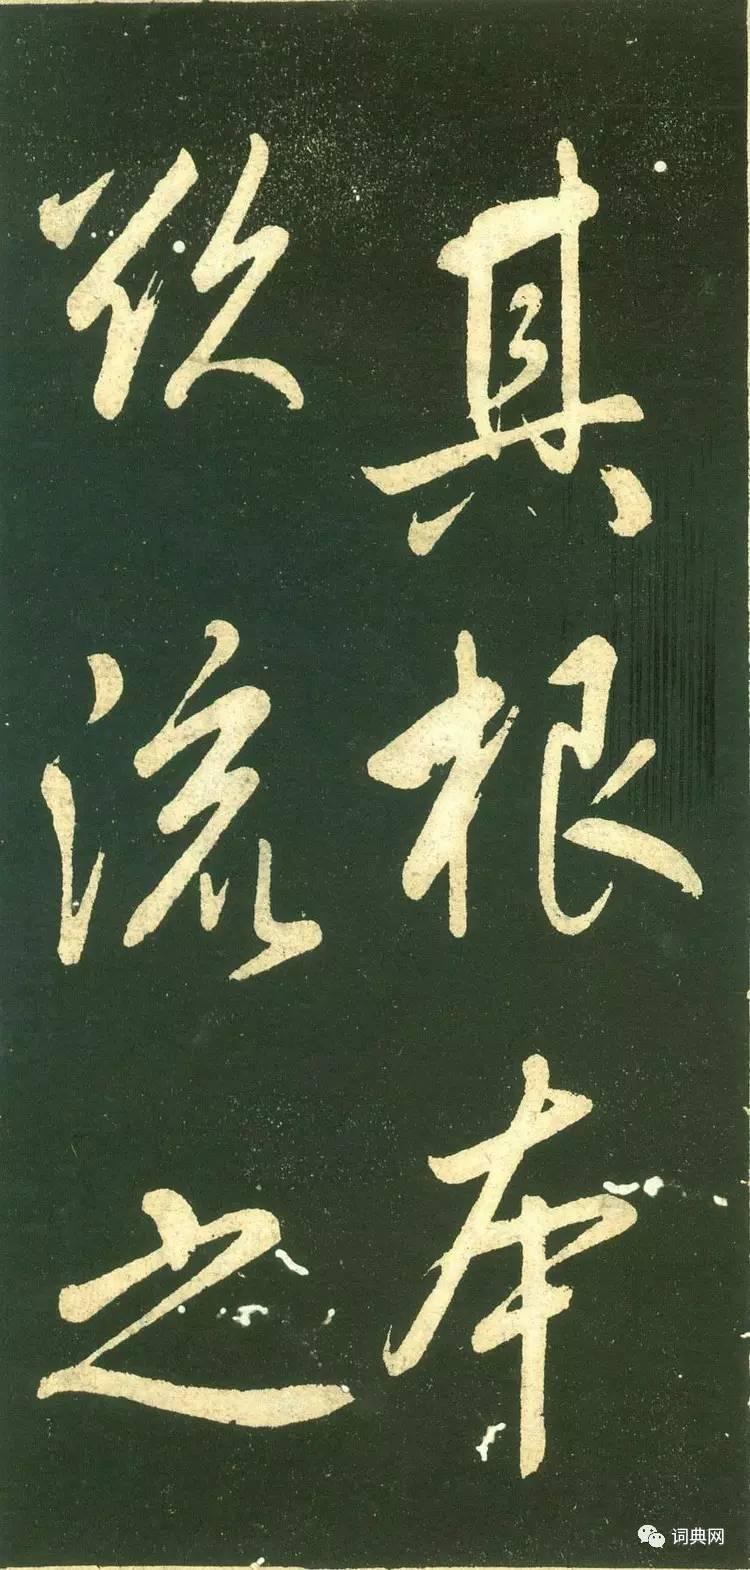 其根本
欲流之
词典网